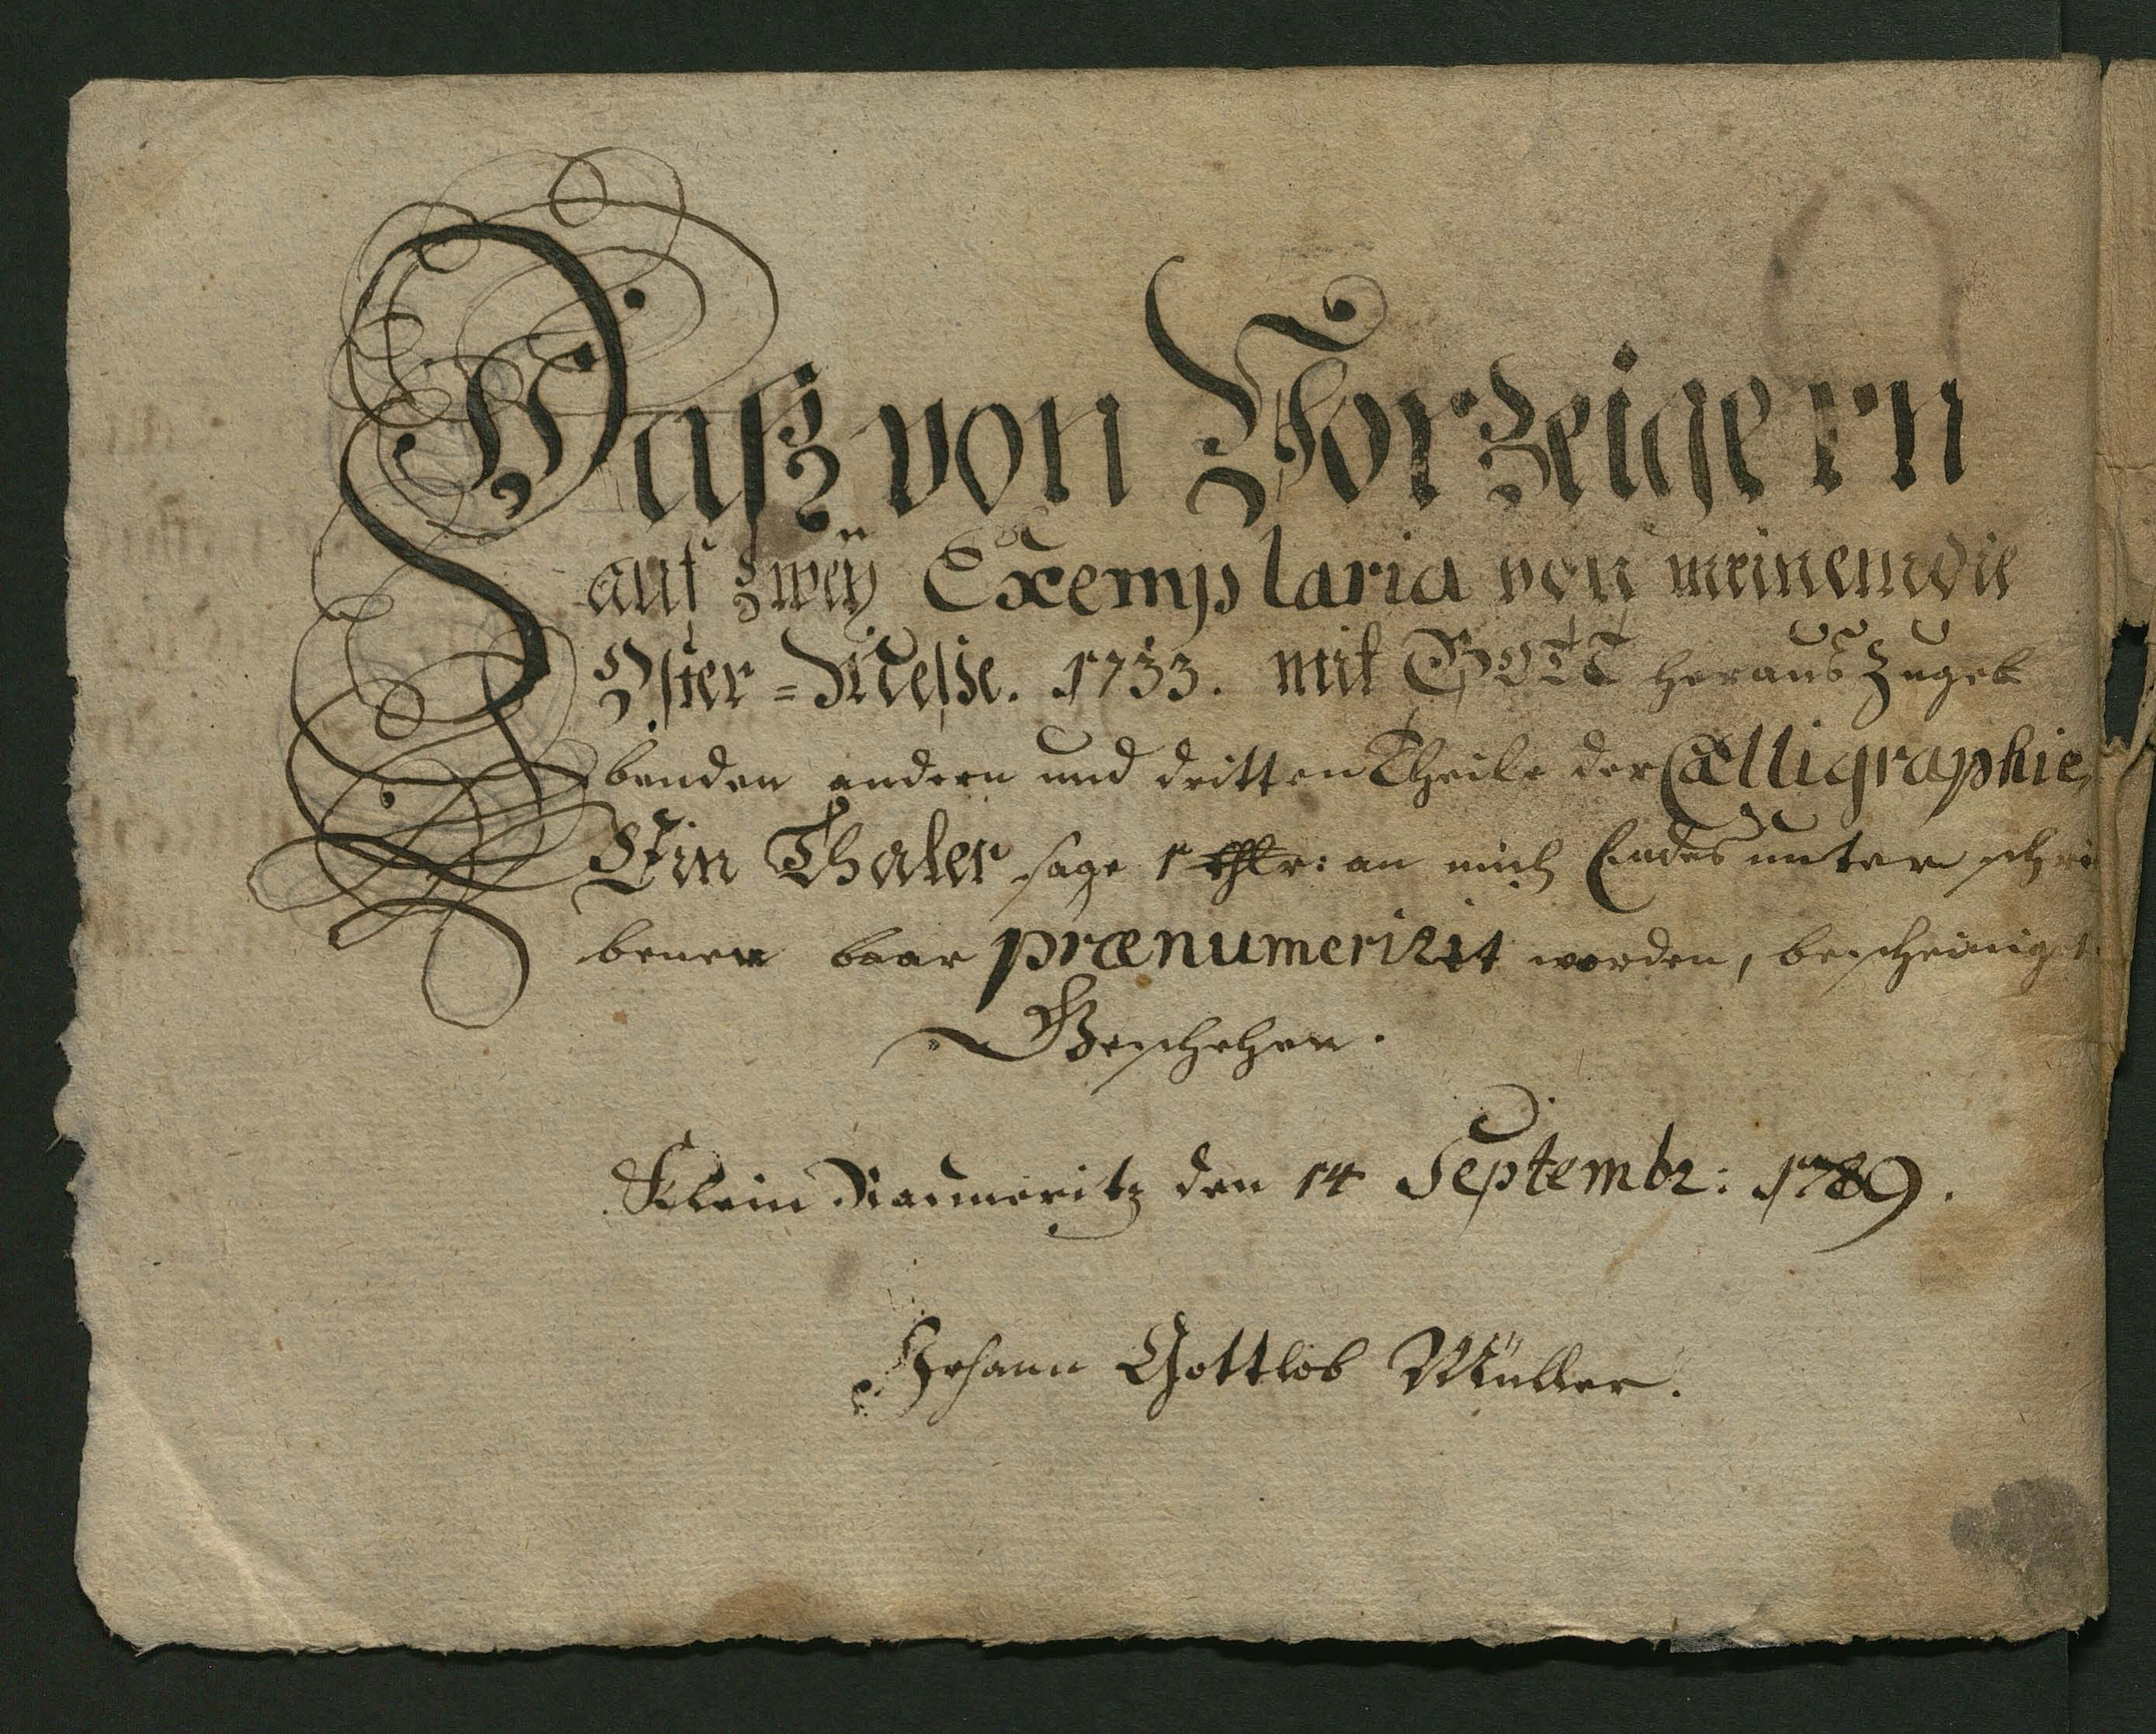 Daß von Vorzeigern
auf zweÿ Exemplaria von meinem die
Oster=Meße. 1733. mit GOTT herauszugeb
benden andern und dritten Theile der Calligraphie,
Ein Thaler sage 1 thlr: an mich Endes unterschri
benen baar prænumeriret worden, bescheinigt.
Geschehen.
Klein Raumeritz den 14 Septembr: 1789.
Johann Gottlob Müller.